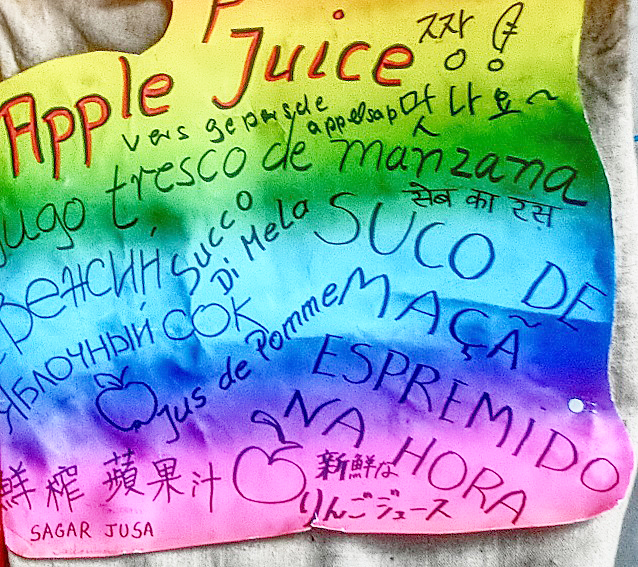 Apple Juice
짱!
맛나요~
vers geperste appelsap
Jugo fresco de manzana
सेब का रस
Succo Di Mela
SUCO DE MAÇÃ
ESPREMIDO
NA HORA
ЯБЛОЧНЫЙ СОК
Jus de Pomme
鮮榨 蘋果汁
新鮮な
りんごジュース
SAGAR JUSA